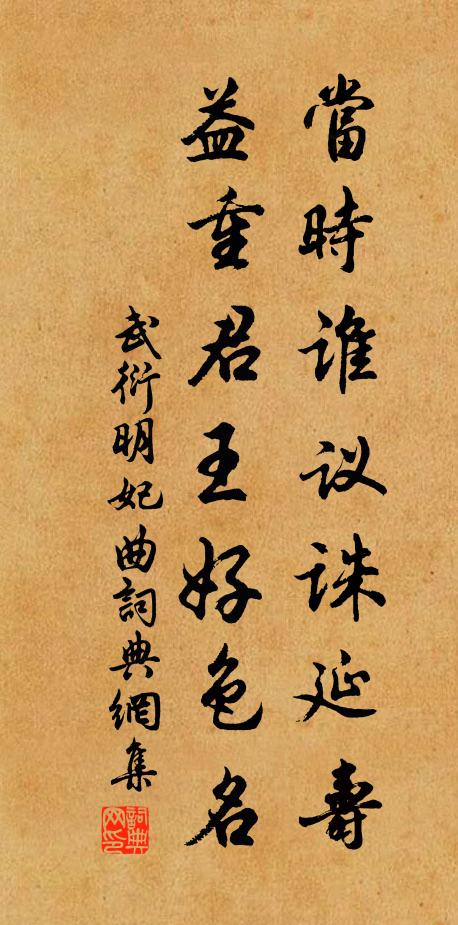 當時誰议誅延壽
益重君王好色名
武衍明妃曲詞典網集
詞典网印